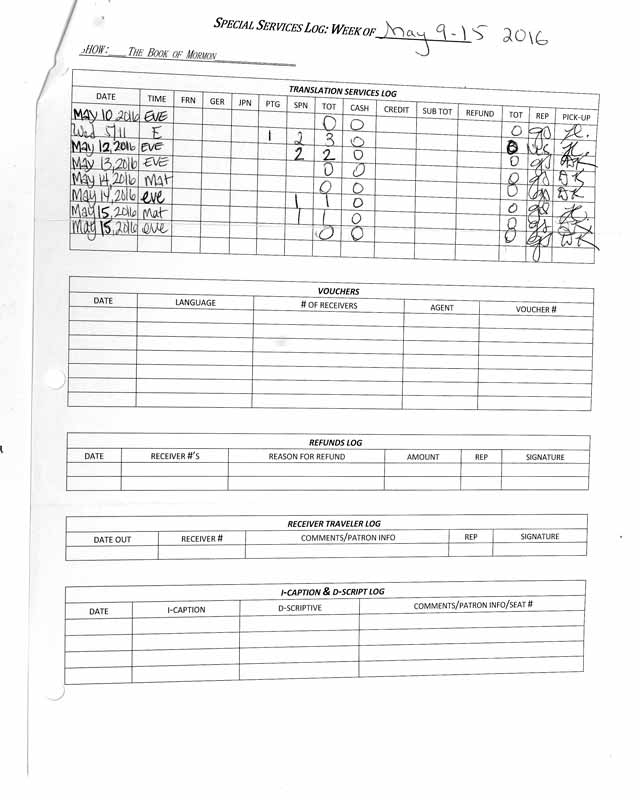 SPECIAL SERVICES LOG: WEEK OF May 9-15 2016
SHOW: THE BOOK OF MORMON
TRANSLATION SERVICES LOG
DATE TIME FRN GER JPN PTG SPN TOT CASH CREDIT SUB TOT REFUND TOT REP PICK-UP
MAY 10, 2016 EVE 0 0
Wed 5/11 E 1 2 3 0 0 gs
May 12, 2016 EVE 2 2 0 0
May 13, 2016 EVE 0 0 0 gs DK
May 14, 2016 Mat 0 0 0 gs DK
May 14, 2016 eve 1 1 0 0 gs
May 15, 2016 Mat 1 1 0 0 gs
May 15, 2016 eve 0 0 0 gs DK
VOUCHERS
DATE LANGUAGE # OF RECEIVERS AGENT VOUCHER #
REFUNDS LOG
DATE RECEIVER #'S REASON FOR REFUND AMOUNT REP SIGNATURE
RECEIVER TRAVELER LOG
DATE OUT RECEIVER # COMMENTS/PATRON INFO REP SIGNATURE
I-CAPTION & D-SCRIPT LOG
DATE I-CAPTION D-SCRIPTIVE COMMENTS/PATRON INFO/SEAT #